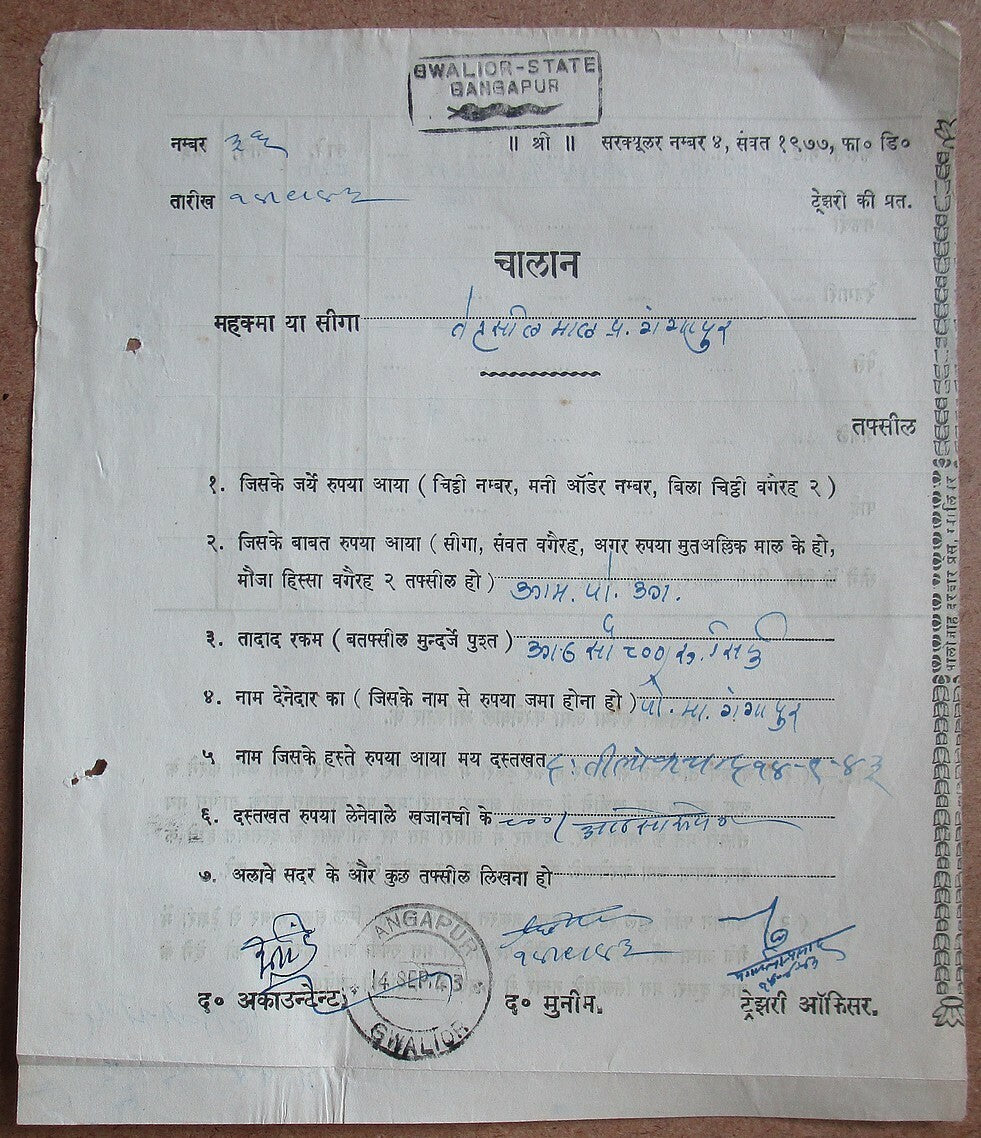 GWALIOR-STATE
GANGAPUR
नम्बर ३६
॥ श्री ॥ सरक्यूलर नम्बर ४, संवत १९७७, फा० डि०
तारीख
ट्रेझरी की प्रत.
चालान
महकमा या सीगा तेहसील माल प्र. गंगापुर
तफ्सील
१. जिसके जर्ये रुपया आया ( चिट्ठी नम्बर, मनी ऑर्डर नम्बर, विला चिट्ठी वगैरह २ )
२. जिसके बाबत रुपया आया ( सीगा, संवत वगैरह, अगर रुपया मुतअल्लिक माल के हो,
मौजा हिस्सा वगैरह २ तफ्सील हो )
३. तादाद रकम ( बतफ्सील मुन्दर्जे पुश्त ) आठ सौ ८००
४. नाम देनेदार का ( जिसके नाम से रुपया जमा होना हो ) पो. मा. गंगापुर
५ नाम जिसके हस्ते रुपया आया मय दस्तखत १४-९-४३
६. दस्तखत रुपया लेनेवाले खजानची के
७. अलावे सदर के और कुछ तफ्सील लिखना हो
GANGAPUR
14 SEP 43
GWALIOR
द० अकाउन्टेन्ट.
द० मुनीम.
ट्रेझरी ऑफिसर.